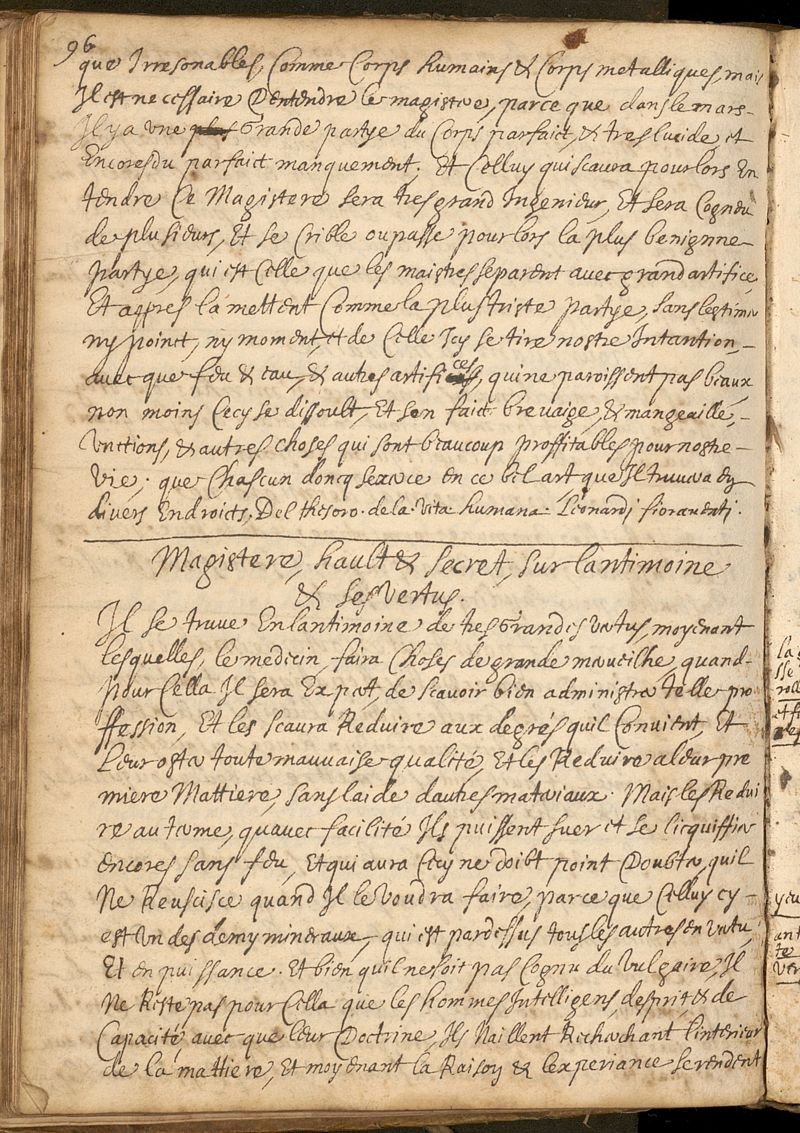 96
que Irresonables, Comme Corps humains & Corps metalliques, mais
Il est necessaire Dentendre le magistere, parce que dans le mars
Il y a une plus Grande partye du Corps parfaict, & tres lucide, et
Encores du parfaict manquement, Et Celluy qui scaura pour lors En
tendre Ce Magistere sera tres grand Ingenieur, Et sera Cogneu
de plusieurs, Et se Crible ou passe pour lors la plus benignne
partye, qui est Celle que les maistres separent avec grand artifice,
Et appres la mettent Comme la plus triste partye, sans lestime
ny poinct, ny moment, et de Celle Icy se tire nostre Intantion,
avec que feu & eau, & autres artifices, qui ne paroissent pas beaux
non moins Cecy se dissoult, Et sen faict brevaige, & mangeaille,
Unctions, & autres choses qui sont beaucoup proffitables pour nostre
Vie, que Chascun doncq sexerce en ce bel art que Il truuera en
divers Endroicts, Del thesoro de la Vita humana Leonardj fiorauenti.
Magistere, hault & secret, sur lantimoine
& ses Vertus.
Il se truve En lantimoine de tres Grandes Vertus, moyenant
lesquelles, le medecin, faira Choses de grande merveilhe, quand
pour Cella Il sera Expert, de scavoir bien administrer telle pro
ffession, Et les scaura Reduire aux degrés quil Convient, Et
Leur oster toute mauvaise qualité, Et les Reduire a leur pre
miere Mattiere, sans laide dautres materiaux. Mais les Redui
re au terme, quavec facilité Ils puissent fuer et se licquiffier
encores sans feu, Et qui aura Cecy ne doibt point Doubter, quil
Ne Reuscisce quand Il le Voudra faire, parce que Celluy cy
est Un des demy mineraux, qui est pardessus tous les autres en Vertu,
Et en puissance. Et bien quil ne soit pas Cognu du Vulgaire, Il
Ne Reste pas pour Cella que les hommes Intelligens, desprit & de
Capacité avec que leur Doctrine, Ils Naillent Recherchant linterieur
de la mattiere, Et moyenant la Raison & lexperiance se rendent